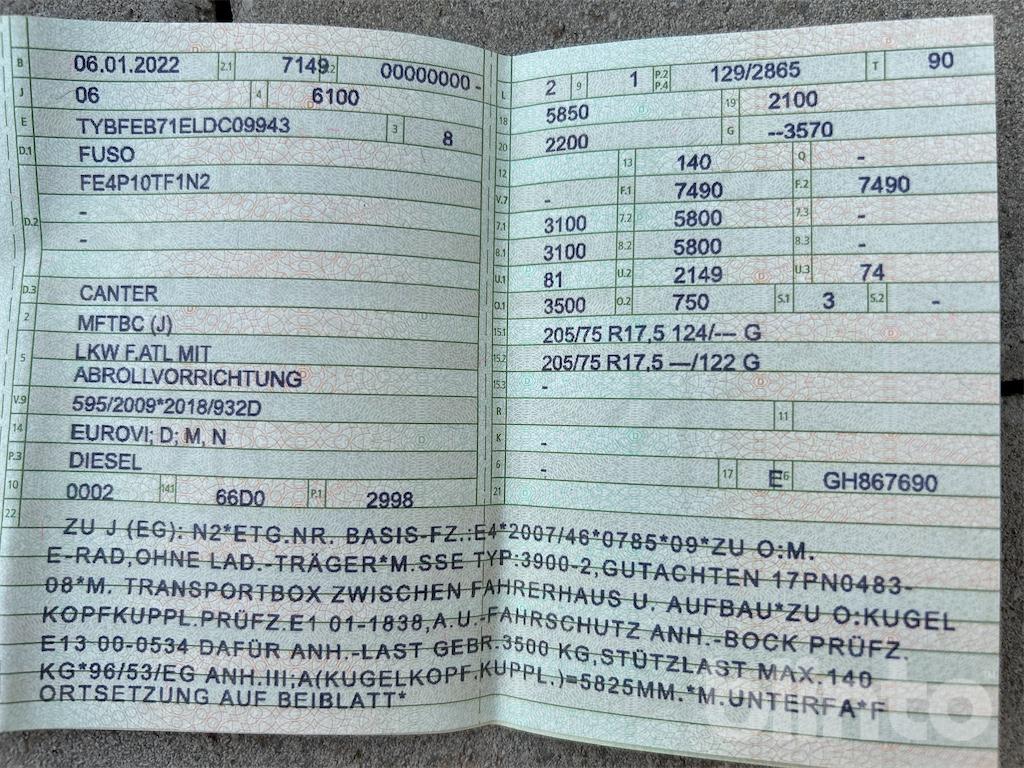 B 06.01.2022 2.1 7149 2.2 00000000 -
J 06 4 6100
E TYBFEB71ELDC09943 3 8
D.1 FUSO
FE4P10TF1N2
D.2 -
-
D.3 CANTER
2 MFTBC (J)
5 LKW F.ATL MIT
ABROLLVORRICHTUNG
V.9 595/2009*2018/932D
14 EUROVI; D; M, N
P.3 DIESEL
10 0002 14.1 66D0 P.1 2998
L 2 9 1 P.2 P.4 129/2865 T 90
18 5850 19 2100
20 2200 G --3570
12 13 140 Q -
V.7 - F.1 7490 F.2 7490
7.1 3100 7.2 5800 7.3 -
8.1 3100 8.2 5800 8.3 -
U.1 81 U.2 2149 U.3 74
O.1 3500 O.2 750 S.1 3 S.2 -
15.1 205/75 R17,5 124/--- G
15.2 205/75 R17,5 ---/122 G
15.3 -
R 11
K -
6 - 17 E 16 GH867690
21
22 ZU J (EG): N2*ETG.NR. BASIS-FZ.:E4*2007/46*0785*09*ZU O:M.
E-RAD,OHNE LAD.-TRÄGER*M.SSE TYP:3900-2,GUTACHTEN 17PN0483-
08*M. TRANSPORTBOX ZWISCHEN FAHRERHAUS U. AUFBAU*ZU O:KUGEL
KOPFKUPPL.PRÜFZ.E1 01-1838,A.U.-FAHRSCHUTZ ANH.-BOCK PRÜFZ.
E13 00-0534 DAFÜR ANH.-LAST GEBR.3500 KG,STÜTZLAST MAX.140
KG*96/53/EG ANH.III;A(KUGELKOPF.KUPPL.)=5825MM.*M.UNTERFA*F
ORTSETZUNG AUF BEIBLATT*